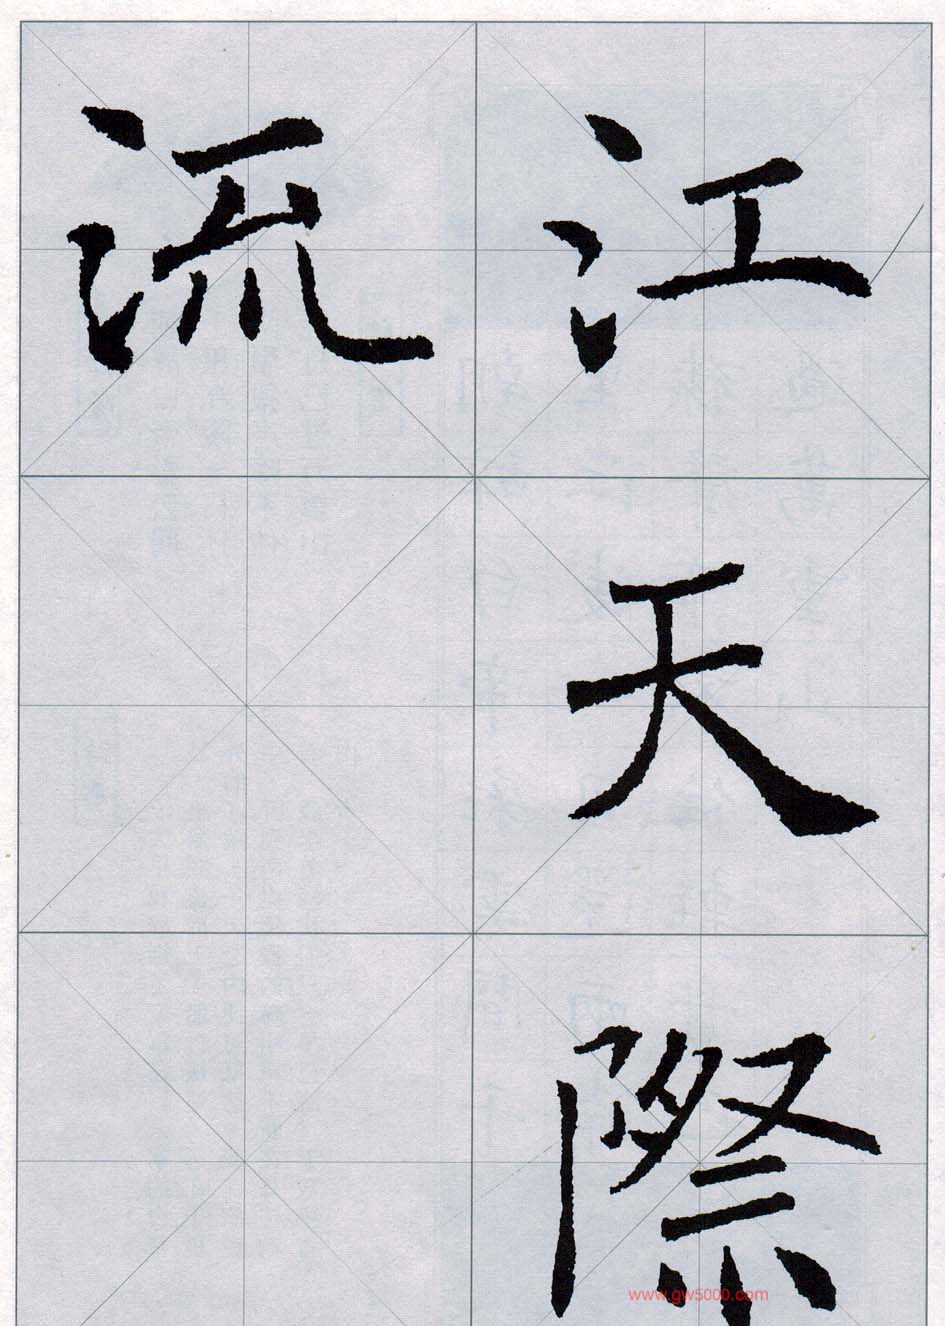 江天際
流
www.gw5000.com